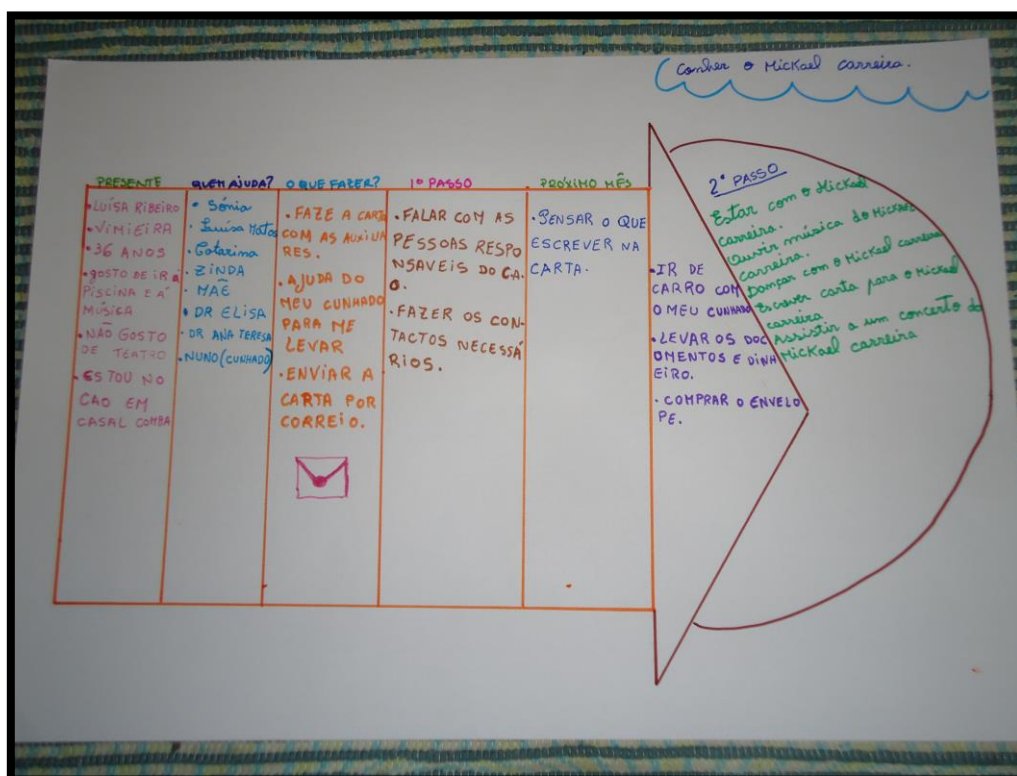 Conher o Mickael Carreira.
PRESENTE
•LUÍSA RIBEIRO
•VIMIEIRA
•36 ANOS
•GOSTO DE IR á
PISCINA E Á
MÚSICA
•NÃO GOSTO
DE TEATRO
•ESTOU NO
CAO EM
CASAL COMBA
QUEM AJUDA?
• Sónia
• Luísa Matos
•Catarina
• ZINDA
• MÃE
• DR ELISA
• DR ANA TERESA
•NUNO(CUNHADO)
O QUE FAZER?
•FAZE A CARTA
COM AS AUXILIA
RES.
•AJUDA DO
MEU CUNHADO
PARA ME
LEVAR
•ENVÍAR A
CARTA POR
CORREIO.
1º PASSO
•FALAR COM AS
PESSOAS RESPO
NSAVEIS DO CA.
O.
•FAZER OS CON-
TACTOS NECESSÁ
RIOS.
PROXIMO MÊS
•PENSAR O QUE
ESCREVER NA
CARTA.
•IR DE
CARRO COM
O MEU CUNHADO
•LEVAR OS DOC
OMENTOS E DINH
EIRO.
•COMPRAR O ENVELO
PE.
2º PASSO
Estar com o Mickael
Carreira.
Ouvir música do Mickael
Carreira.
Dançar com o Mickael carreira
Escrever carta para o Mickael
carreira
Assistir a um concerto do
Mickael carreira